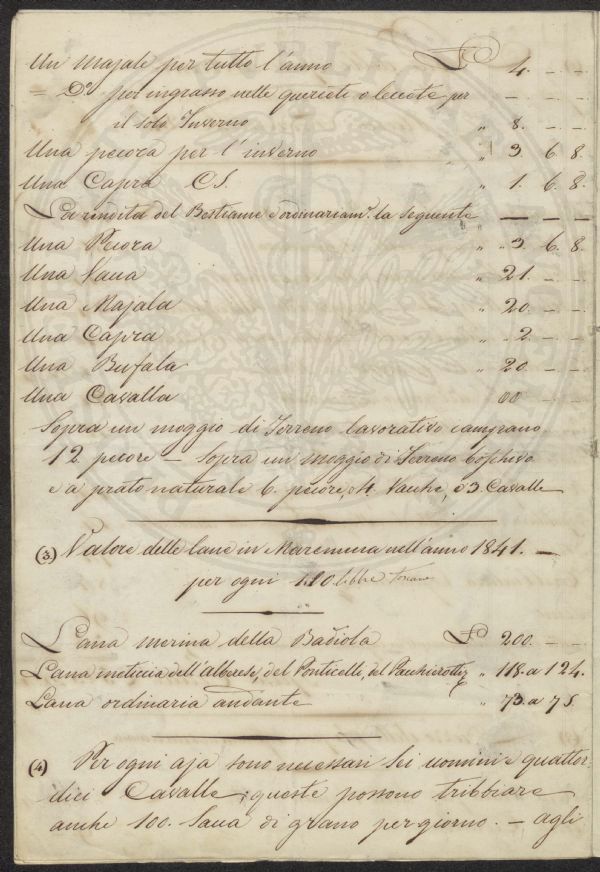 Un majale per tutto l'anno £ 4. – –
= Dº per ingrasso nelle querciete o leccete per – – –
il solo Inverno " 8. – –
Una pecora per l'inverno " 3. 6. 8.
Una Capra C.S. " 1. 6. 8.
La rendita del Bestiame è ordinariamᵉ. la seguente – – –
Una Pecora " 3. 6. 8.
Una Vacca " 21. – –
Una Majala " 20. – –
Una Capra " 2. – –
Una Bufala " 20. – –
Una Cavalla 00 – –
Sopra un moggio di Terreno lavorativo campano
12 pecore – sopra un moggio di Terreno boschivo
e a prato naturale 6. pecore, o 4. Vacche, o 3. Cavalle
(3) Valore delle lane in Maremma nell'anno 1841. –
per ogni 110 libbre Toscane
Lana merina della Badiola £ 200. – –
Lana meticcia dell'Alberese, del Ponticelli, del " 118. a 124.
Lana ordinaria andante " 73. a 75.
(4) Per ogni aja sono necessari sei uomini e quattor-
dici Cavalle; queste possono tribbiare
anche 100. Sacca di grano per giorno. – agli